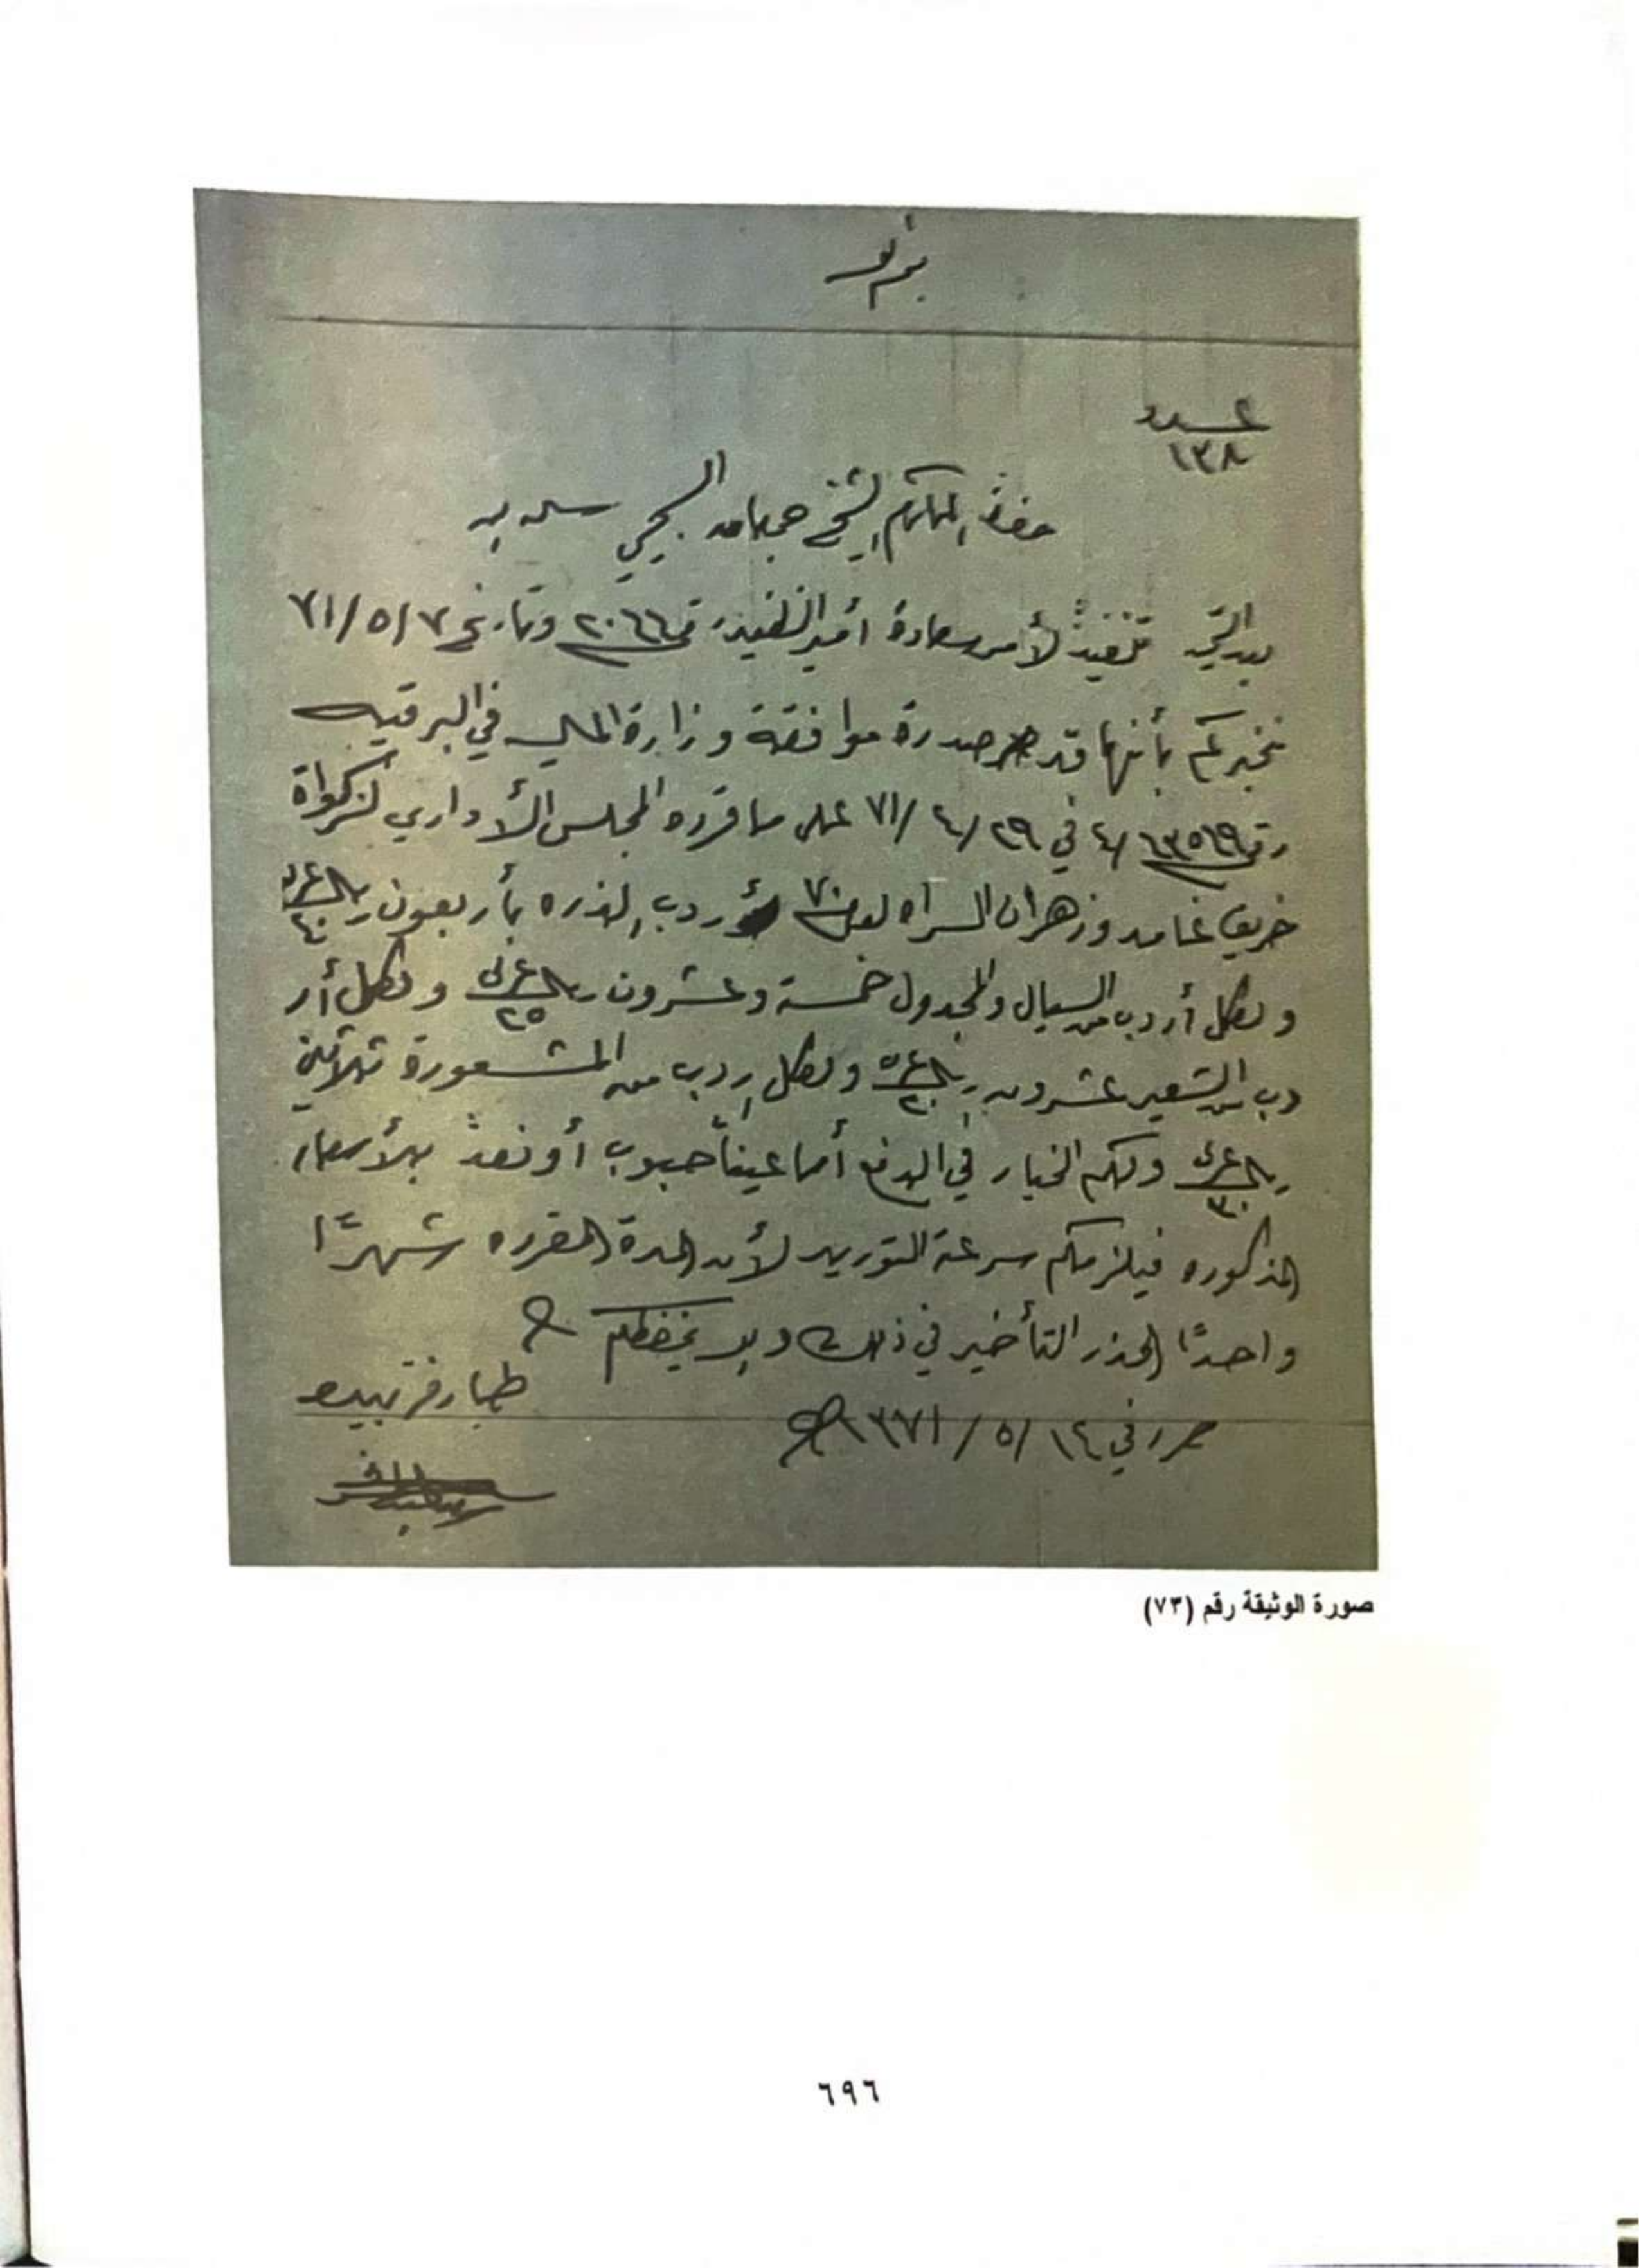 عدد
١٣٨
حضرة المكرم الشيخ جمعان السبيحي سلمه الله
بعد التحية تنفيذً لأمر سعادة أمير الظفير رقم ٢٠٦٦ وتاريخ ٧/٥/٧١
نخبركم بأنها قد صدرة موافقة وزارة الماليه في البرقيه
رقم ٤/١٣٥٦٩ في ٢٩/٤/٧١ على ما قرره المجلس الأداري لزكواة
خريف غامد وزهران السراه لعام ٧٠ أردب الذره بأربعون ريال عربي ٤٠
ولكل أردب من السيال والمجدول خمسة وعشرون ريال عربي ٢٥ ولكل أر
دب من الشعير عشرون ريال عربي ٢٠ ولكل إردب من المشعورة ثلاثين
ريال عربي ٣٠ ولكم الخيار في الدفع أما عيناً حبوب أو نقدً بالأسعار
المذكوره فيلزمكم سرعة التوريد لأن المدة المقرره شهرًا
واحدًا الحذر التأخير في ذلك والله يحفظكم
حرر في ١٤/٥/١٣٧١
صورة الوثيقة رقم (٧٣)
٦٩٦